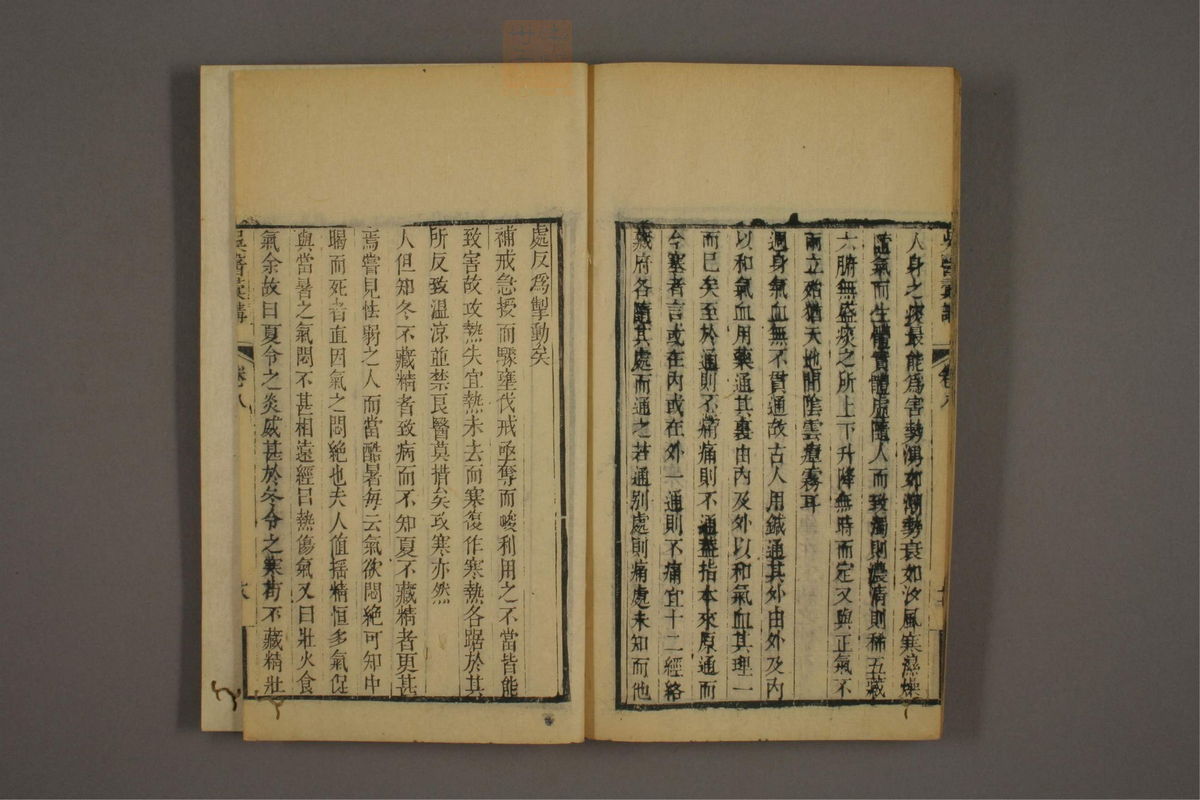 吳醫彙講 卷八
人身之痰最能為害勢湧如潮勢衰如汐風寒濕燥
隨氣而生體實體虛隨人而致濁則濃清則稀五藏
六腑無盛痰之所上下升降無時而定又與正氣不
兩立殆猶天地間陰雲瘴霧耳
通身氣血無不貫通故古人用鍼通其外由外及內
以和氣血用藥通其裏由內及外以和氣血其理一
而已矣至於通則不痛痛則不通蓋指本來原通而
今塞者言或在內或在外一通則不痛宜十二經絡
藏府各隨其處而通之若通別處則痛處未知而他
處反為掣動矣
補戒急授而驟壅伐戒亟奪而峻利用之不當皆能
致害故攻熱失宜熱未去而寒復作寒熱各踞於其
所反致溫涼並禁良醫莫措矣攻寒亦然
人但知冬不藏精者致病而不知夏不藏精者更甚
焉嘗見怯弱之人而當酷暑每云氣欲悶絕可知中
暍而死者直因氣之悶絕也夫人值搖精恒多氣促
與當暑之氣悶不甚相遠經曰熱傷氣又曰壯火食
氣余故曰夏令之炎威甚於冬令之寒苟不藏精壯
吳醫彙講 卷八